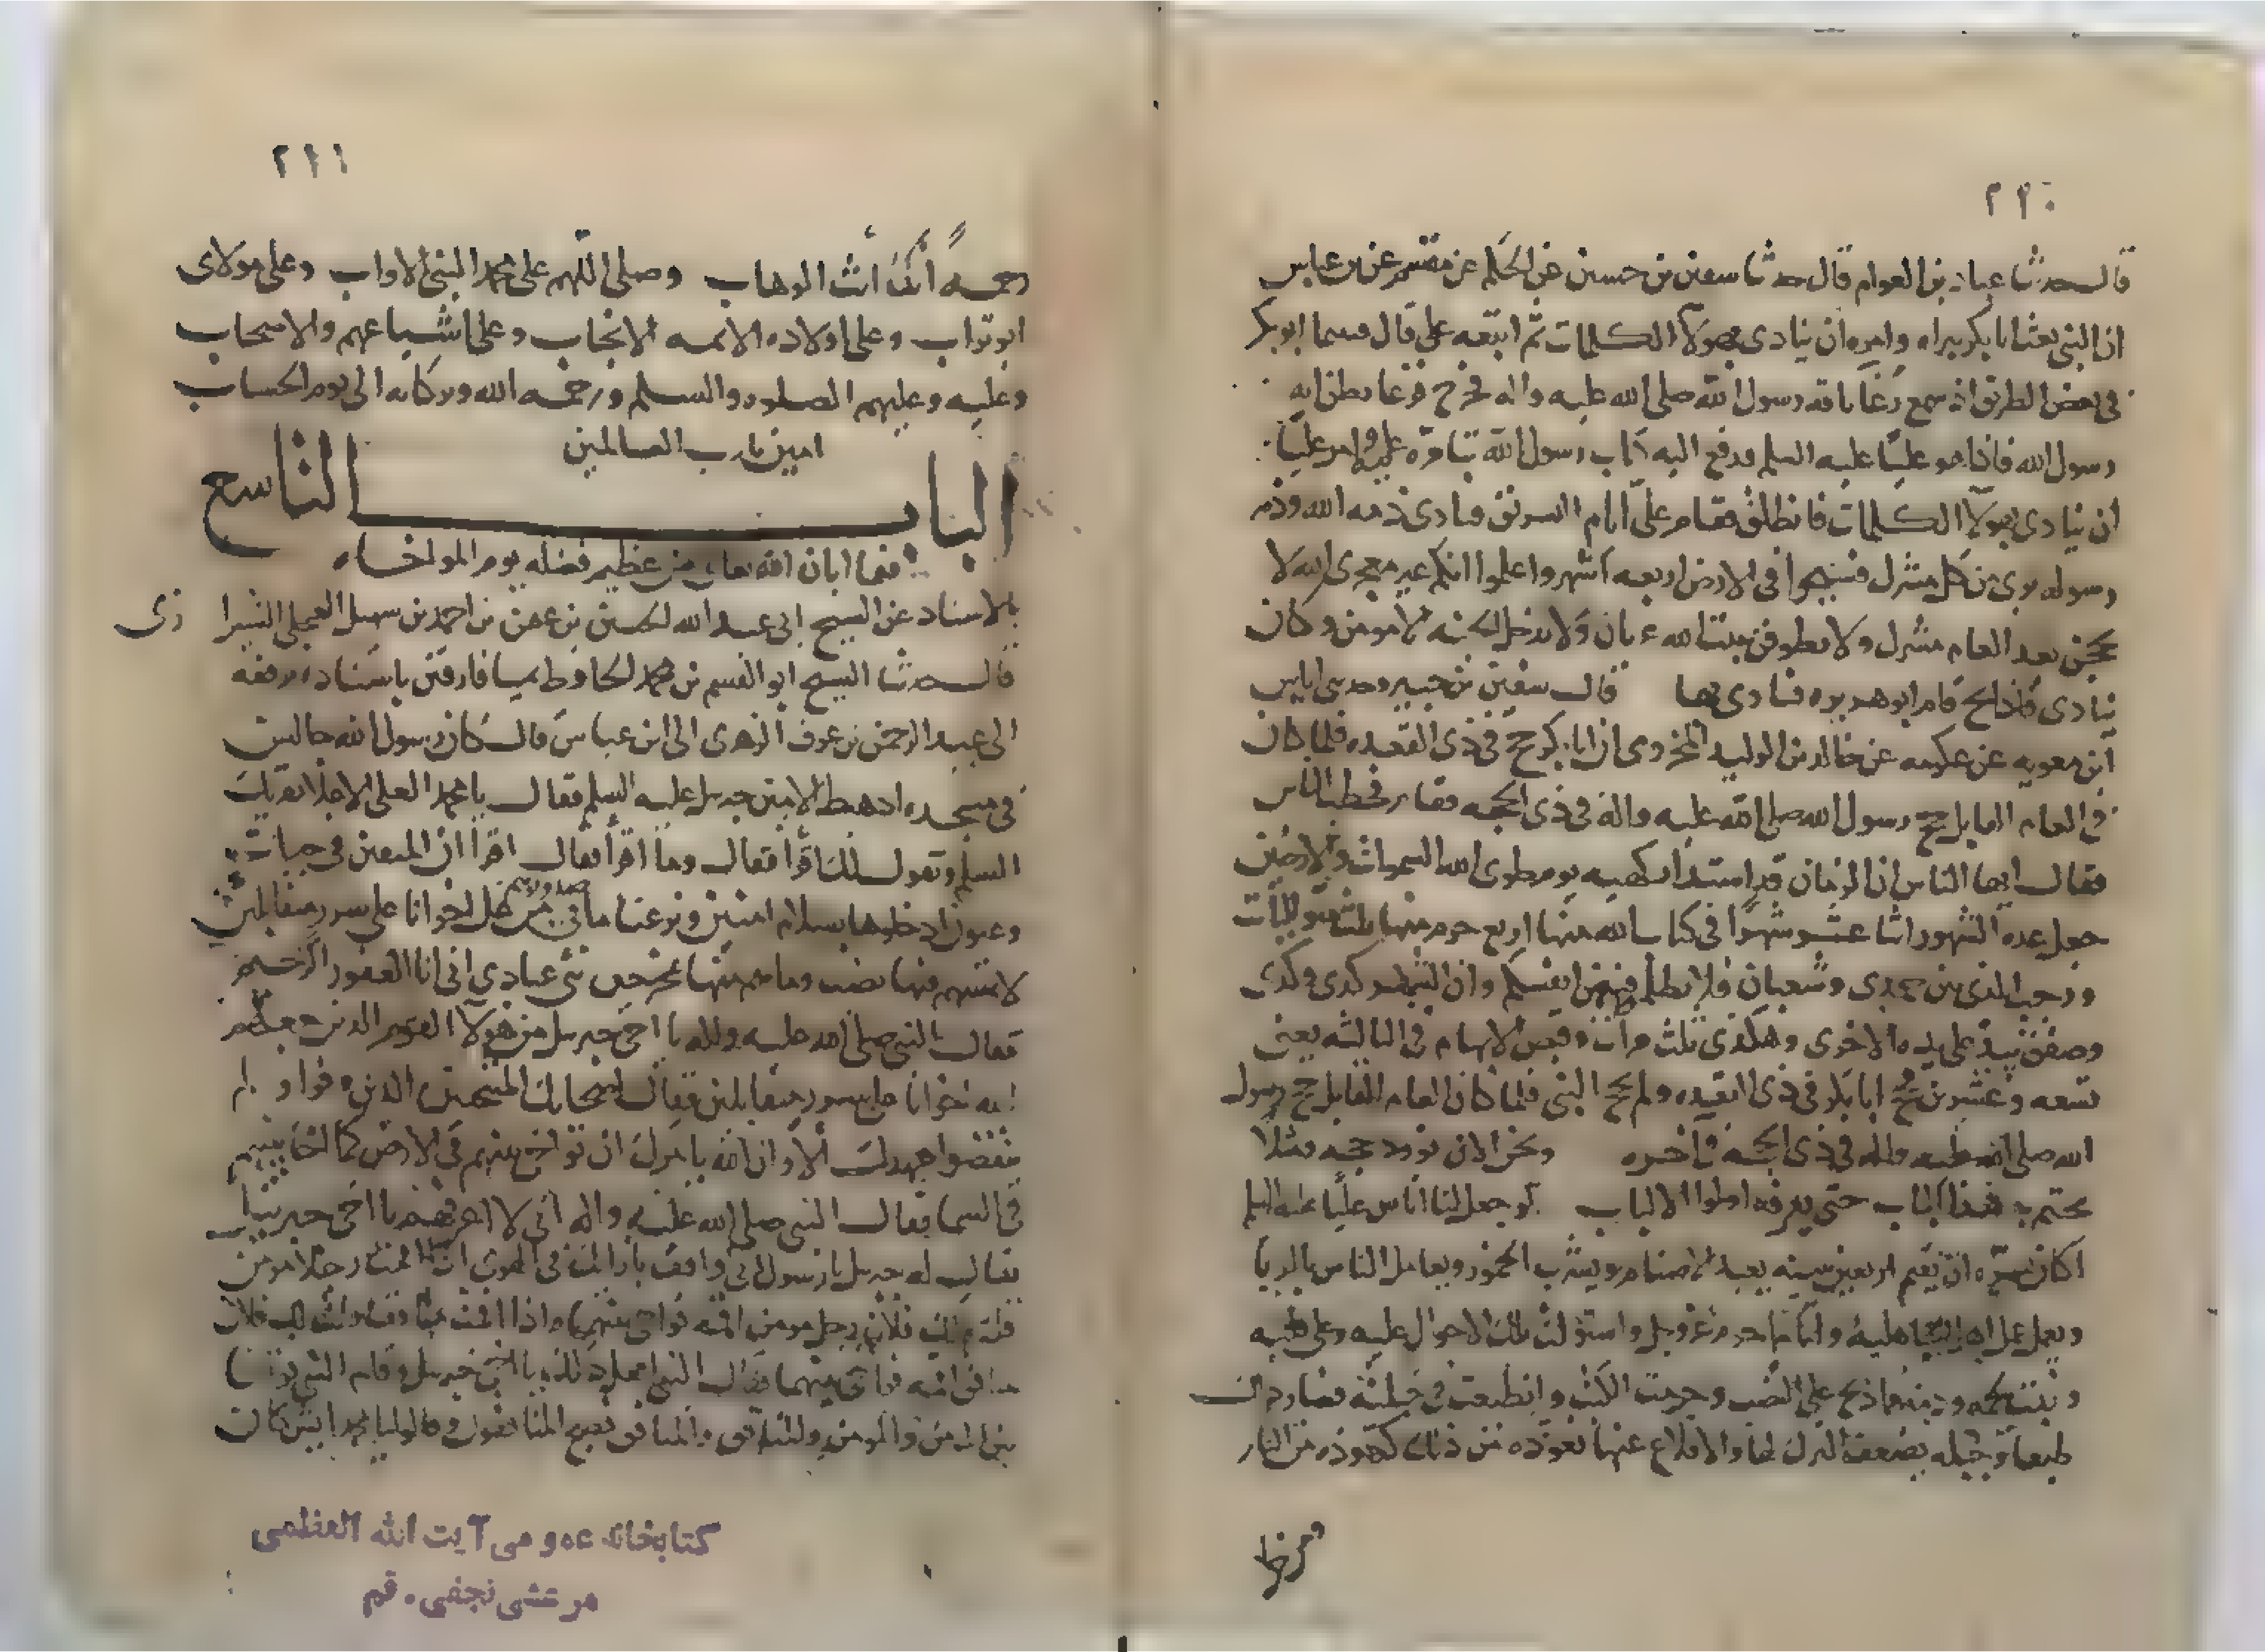 ٢٢٠
قال حدثنا عباد بن العوام قال حدثنا سفين بن حسين عن الحكم عن مقسم عن بن عباس
ان النبي بعث ابا بكر ببراه وامره ان ينادى بهولا الكلمات ثم اتبعه علي قال فبينما ابو بكر
في بعض الطريق اذ سمع رغا ناقه رسول الله صلى الله عليه واله فخرج فزعا يظن انه
رسول الله فاذا هو عليا عليه السلم فدفع اليه كتاب رسول الله وامر عليا
ان ينادى بهولا الكلمات فانطلق فقام على ايام التشريق فنادى ذمه الله وذمه
رسوله برى من كل مشرك فسيحوا في الارض اربعه اشهر واعلموا انكم غير معجزى الله لا
يحجن بعد العام مشرك ولا يطوفن ببيت الله عريان ولا يدخل الجنه الا مومن وكان
ينادى فاذا بح قام ابو هريره فنادى بها قال سفين بن
بن معويه عن عكرمه عن خالد بن الوليد المخزومى ان ابا بكر حج في ذى القعده فلما كان
في العام القابل حج رسول الله صلى الله عليه واله في ذى الحجه فقام فخطب الناس
فقال ايها الناس ان الزمان قد استدار كهيئه يوم طوى الله السموات والارضين
جعل عده الشهور اثنا عشر شهرا في كتاب الله منها اربع حرم منها ثلث متواليات
ورجب الذى بين جمدى وشعبان فلا تظلموا فيهن انفسكم وان الشهر كذى وكذى
وصفق بيده على يده الاخرى وهكذى ثلث مرات وقبض الابهام في الثالثه يعنى
تسعه وعشرين حج ابا بكر في ذى القعده ولم يحج النبي فلما كان العام القابل حج رسول
الله صلى الله عليه واله في ذى الحجه ونحن الان نورد حجه ومثلا
نختم به هذا الباب حتى يعرفه اولوا الالباب لو جعل لنا اناس عليا عليه السلم
اكان يسره ان يقيم اربعين سنه يعبد الاصنام ويشرب الخمور ويعامل الناس بالربا
ويعمل عمل اهل الجاهليه واستولت تلك الاحوال عليه وعلى قلبه
ونبت لحمه ودمه مما ذبح على النصب وانطبعت في جبلته فصار ذلك
طبعا وجبله يضعف الترك لها والاقلاع عنها نعوذه من ذلك كعوذه من النار
٢٢١
رحمة انك انت الوهاب وصلى اللهم على محمد النبي الاواب وعلى مولاى
ابو تراب وعلى اولاده الائمه الانجاب وعلى اشياعهم والاصحاب
وعليه وعليهم الصلوه والسلم ورحمه الله وبركاته الى يوم الحساب
امين يا رب العالمين
الباب التاسع
فيما ابان الله تعالى من عظيم فضله يوم المواخاه
بالاسناد عن الشيخ ابى عبد الله الحسين بن احمد بن سهيل العجلى الشيرازى
قال حدثنا الشيخ ابو القسم بن محمد الحافظ بميافارقين باسناده يرفعه
الى عبد الرحمن بن عوف الزهرى الى ابن عباس قال كان رسول الله جالس
في مسجده اذ هبط الامين جبريل عليه السلم فقال يا محمد العلى الاعلا يقريك
السلم ويقول لك اقرا فقال وما اقرا فقال اقرا ان المتقين في جنات
وعيون ادخلوها بسلام امنين ونزعنا ما في صدورهم من غل اخوانا على سرر متقابلين
لا يمسهم فيها نصب وما هم منها بمخرجين نبى عبادى انى انا الغفور الرحيم
فقال النبي صلى الله عليه واله يا اخى جبريل من هولا القوم الذين جعلهم
الله اخوانا على سرر متقابلين فقال اصحابك المنتجبين الذين وفوا ولم
ينقضوا عهدك الا وان الله يامرك ان تواخى بينهم في الارض كما اخا بينهم
في السما فقال النبي صلى الله عليه واله انى لا اعرفهم يا اخى جبريل
فقال له جبريل يا رسول الله انى واقف بازائك في الهوى ان اقمت رجلا مومن
قلت لك فلان رجل مومن اقمه فواخى بينهما واذا اقمت منافقا قلت لك فلان
منافق اقمه فواخى بينهما فقال النبي افعل ذلك يا اخى جبريل وقام النبي
بين المومن والمومن والمنافق والمنافق فضج المنافقون وقالوا يا محمد ايش كان
كتابخانه عمومى آيت الله العظمى
مرعشى نجفى - قم